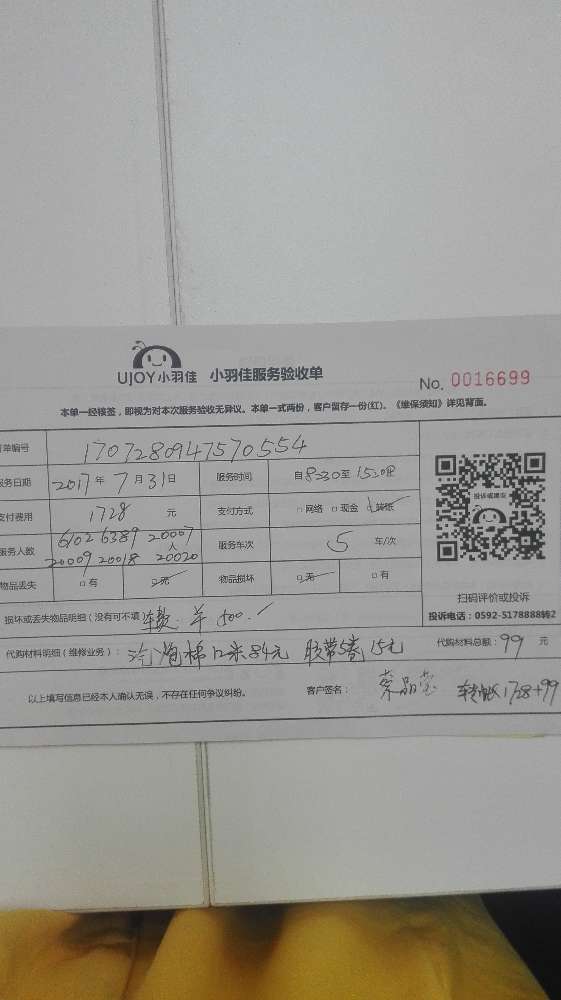 UJOY小羽佳 小羽佳服务验收单
No. 0016699
本单一经核签，即视为对本次服务验收无异议。本单一式两份，客户留存一份(红)。《维保须知》详见背面。
单编号 1707280947570554
服务日期 2017年 7月31日 服务时间 自8:30至15:30
支付费用 1728 元 支付方式 □网络 □现金 转账
服务人数 6102 6389 20007 人 服务车次 5 车/次
20009 20018 20020
物品丢失 □有 □无 物品损坏 □无 □有
投诉或建议
扫码评价或投诉
投诉电话：0592-5178888转2
损坏或丢失物品明细（没有可不填
代购材料明细（维修业务）：汽泡棉12米84元 胶带5卷15元 代购材料总额：99 元
以上填写信息已经本人确认无误，不存在任何争议纠纷。 客户签名： 蔡晶莹 转账1728+99